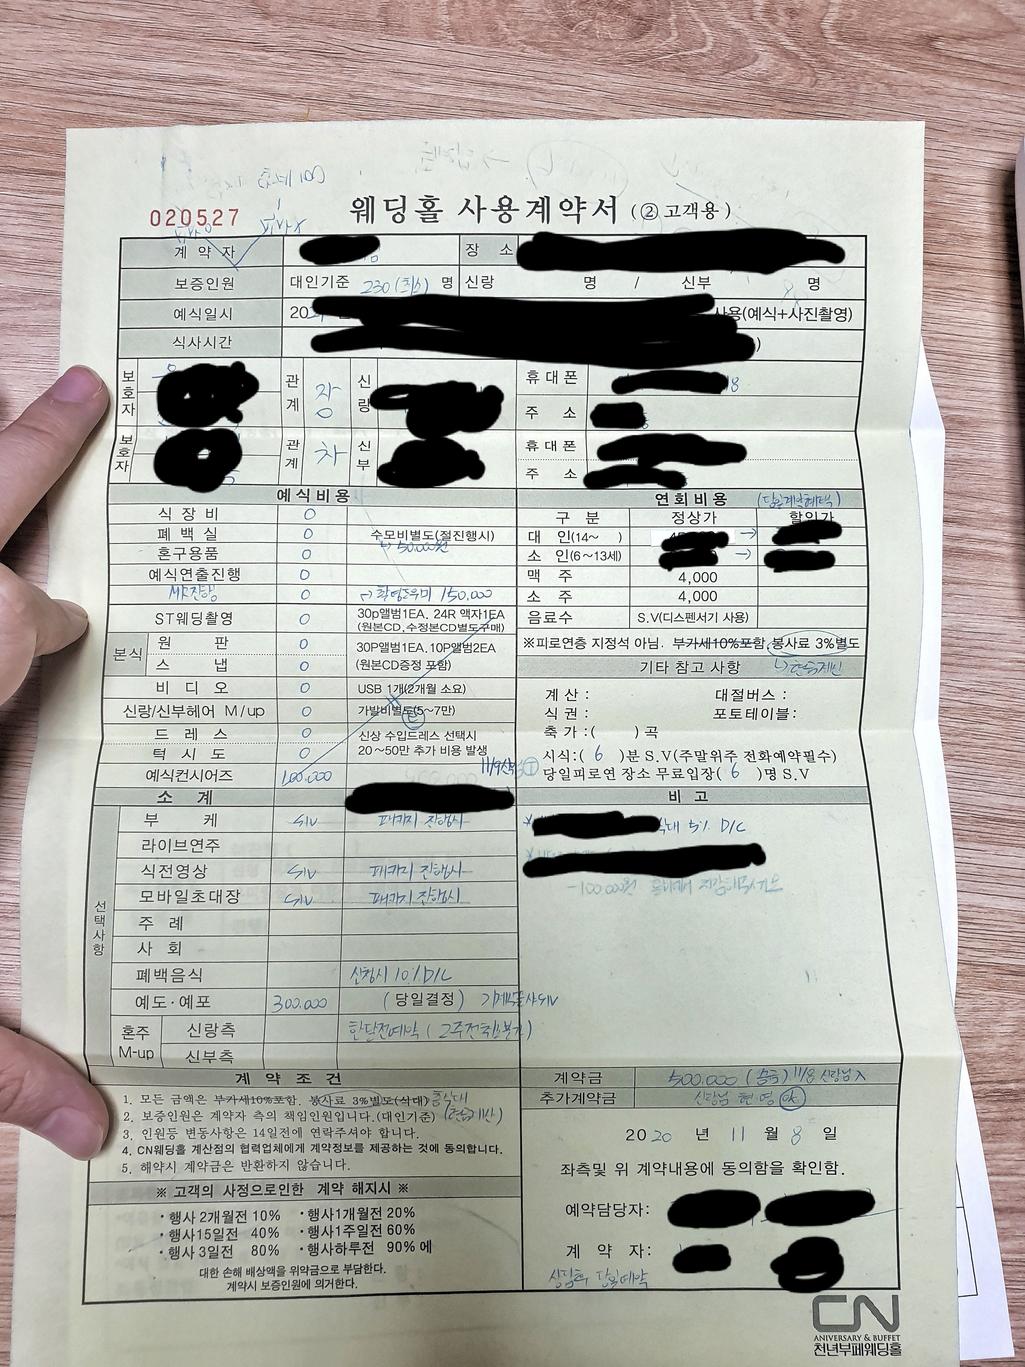 020527
웨딩홀 사용계약서 (② 고객용)
계 약 자
장 소
보증인원 대인기준 230 (최소) 명 신랑 명 / 신부 명
예식일시 20 사용(예식+사진촬영)
식사시간
보호자 관계 장 신랑 휴대폰 8
주 소
보호자 관계 차 신부 휴대폰
주 소
예식비용
식 장 비 0
폐 백 실 0 수모비별도(절진행시)
혼구용품 0 50,000원
예식연출진행 0
MR진행 촬영도우미 150,000
ST웨딩촬영 0 30p앨범1EA. 24R 액자1EA
(원본CD, 수정본CD별도구매)
본식 원 판 0 30P앨범1EA. 10P앨범2EA
스 냅 0 (원본CD증정 포함)
비 디 오 0 USB 1개(2개월 소요)
신랑/신부헤어 M/up 0 가발비별도(5~7만)
드 레 스 0 신상 수입드레스 선택시
턱 시 도 0 20~50만 추가 비용 발생
예식컨시어즈 100.000
소 계
선택사항
부 케 S.V 패키지 진행시
라이브연주
식전영상 S.V 패키지 진행시
모바일초대장 S.V 패키지 진행시
주 례
사 회
폐백음식 신청시 10% D/C
예도·예포 300.000 (당일결정)
혼주 M-up 신랑측 한달전예약 (2주전취소불가)
신부측
연회비용 (당일계약혜택)
구 분 정상가 할인가
대 인(14~ ) →
소 인(6~13세) →
맥 주 4,000
소 주 4,000
음료수 S.V(디스펜서기 사용)
※피로연층 지정석 아님. 부가세10%포함, 봉사료 3%별도
기타 참고 사항
계산 : 대절버스 :
식권 : 포토테이블:
축가 :( ) 곡
시식:( 6 )분 S.V(주말위주 전화예약필수)
당일피로연 장소 무료입장( 6 )명 S.V
비 고
식대 5% D/C
계 약 조 건
1. 모든 금액은 부가세10%포함. 봉사료 3%별도(식대)
2. 보증인원은 계약자 측의 책임인원입니다.(대인기준)
3. 인원등 변동사항은 14일전에 연락주셔야 합니다.
4. CN웨딩홀 계산점의 협력업체에게 계약정보를 제공하는 것에 동의합니다.
5. 해약시 계약금은 반환하지 않습니다.
※ 고객의 사정으로인한 계약 해지시 ※
· 행사 2개월전 10% · 행사1개월전 20%
· 행사15일전 40% · 행사1주일전 60%
· 행사 3일전 80% · 행사하루전 90% 에
대한 손해 배상액을 위약금으로 부담한다.
계약시 보증인원에 의거한다.
계약금 500.000 (송금) 11/8 신랑님
추가계약금 신랑님 현영 ok
20 20 년 11 월 8 일
좌측및 위 계약내용에 동의함을 확인함.
예약담당자:
계 약 자:
상담후 당일예약
CN
ANIVERSARY & BUFFET
천년부페웨딩홀